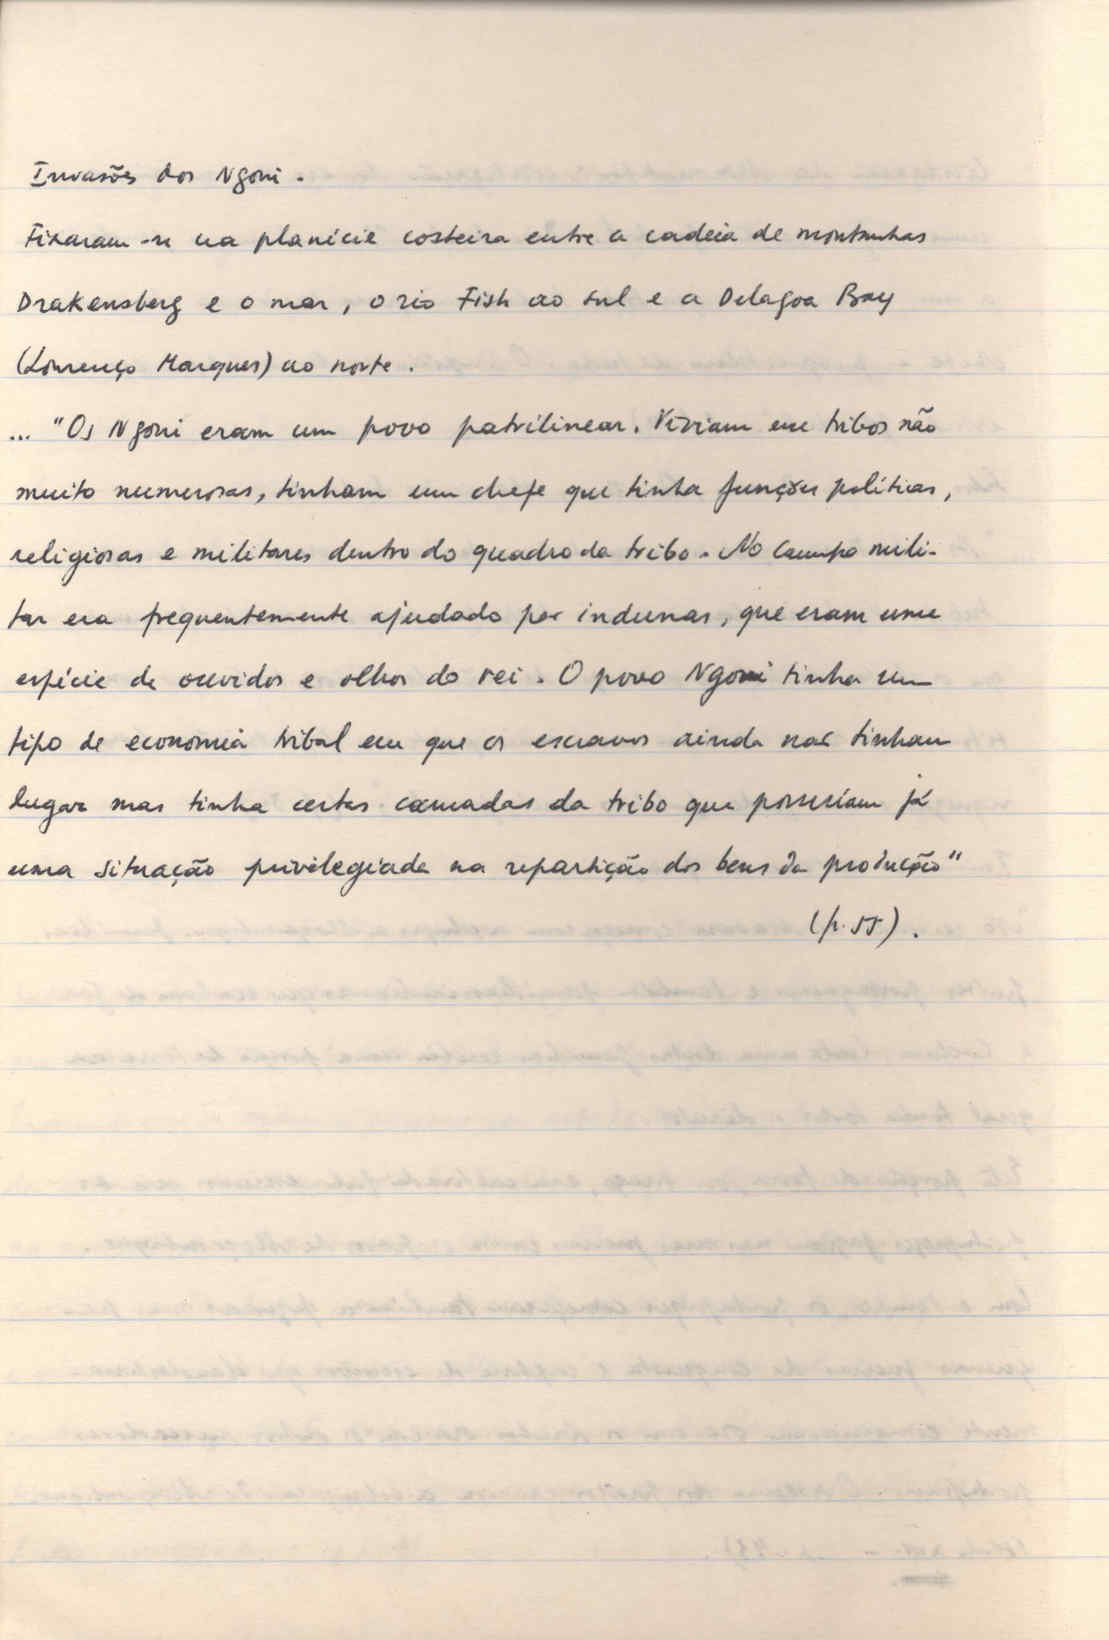 Invasões dos Ngoni.
Fixaram-se na planície costeira entre a cadeia de montanhas
Drakensberg e o mar, o rio Fish ao sul e a Delagoa Bay
(Lourenço Marques) ao norte.
... "Os Ngoni eram um povo patrilinear. Viviam em tribos não
muito numerosas, tinham um chefe que tinha funções políticas,
religiosas e militares dentro do quadro da tribo. No campo mili-
tar era frequentemente ajudado por indunas, que eram uma
espécie de ouvidos e olhos do rei. O povo Ngoni tinha um
tipo de economia tribal em que os escravos ainda não tinham
lugar mas tinha certas camadas da tribo que possuíam já
uma situação privilegiada na repartição dos bens da produção"
(p. 55).